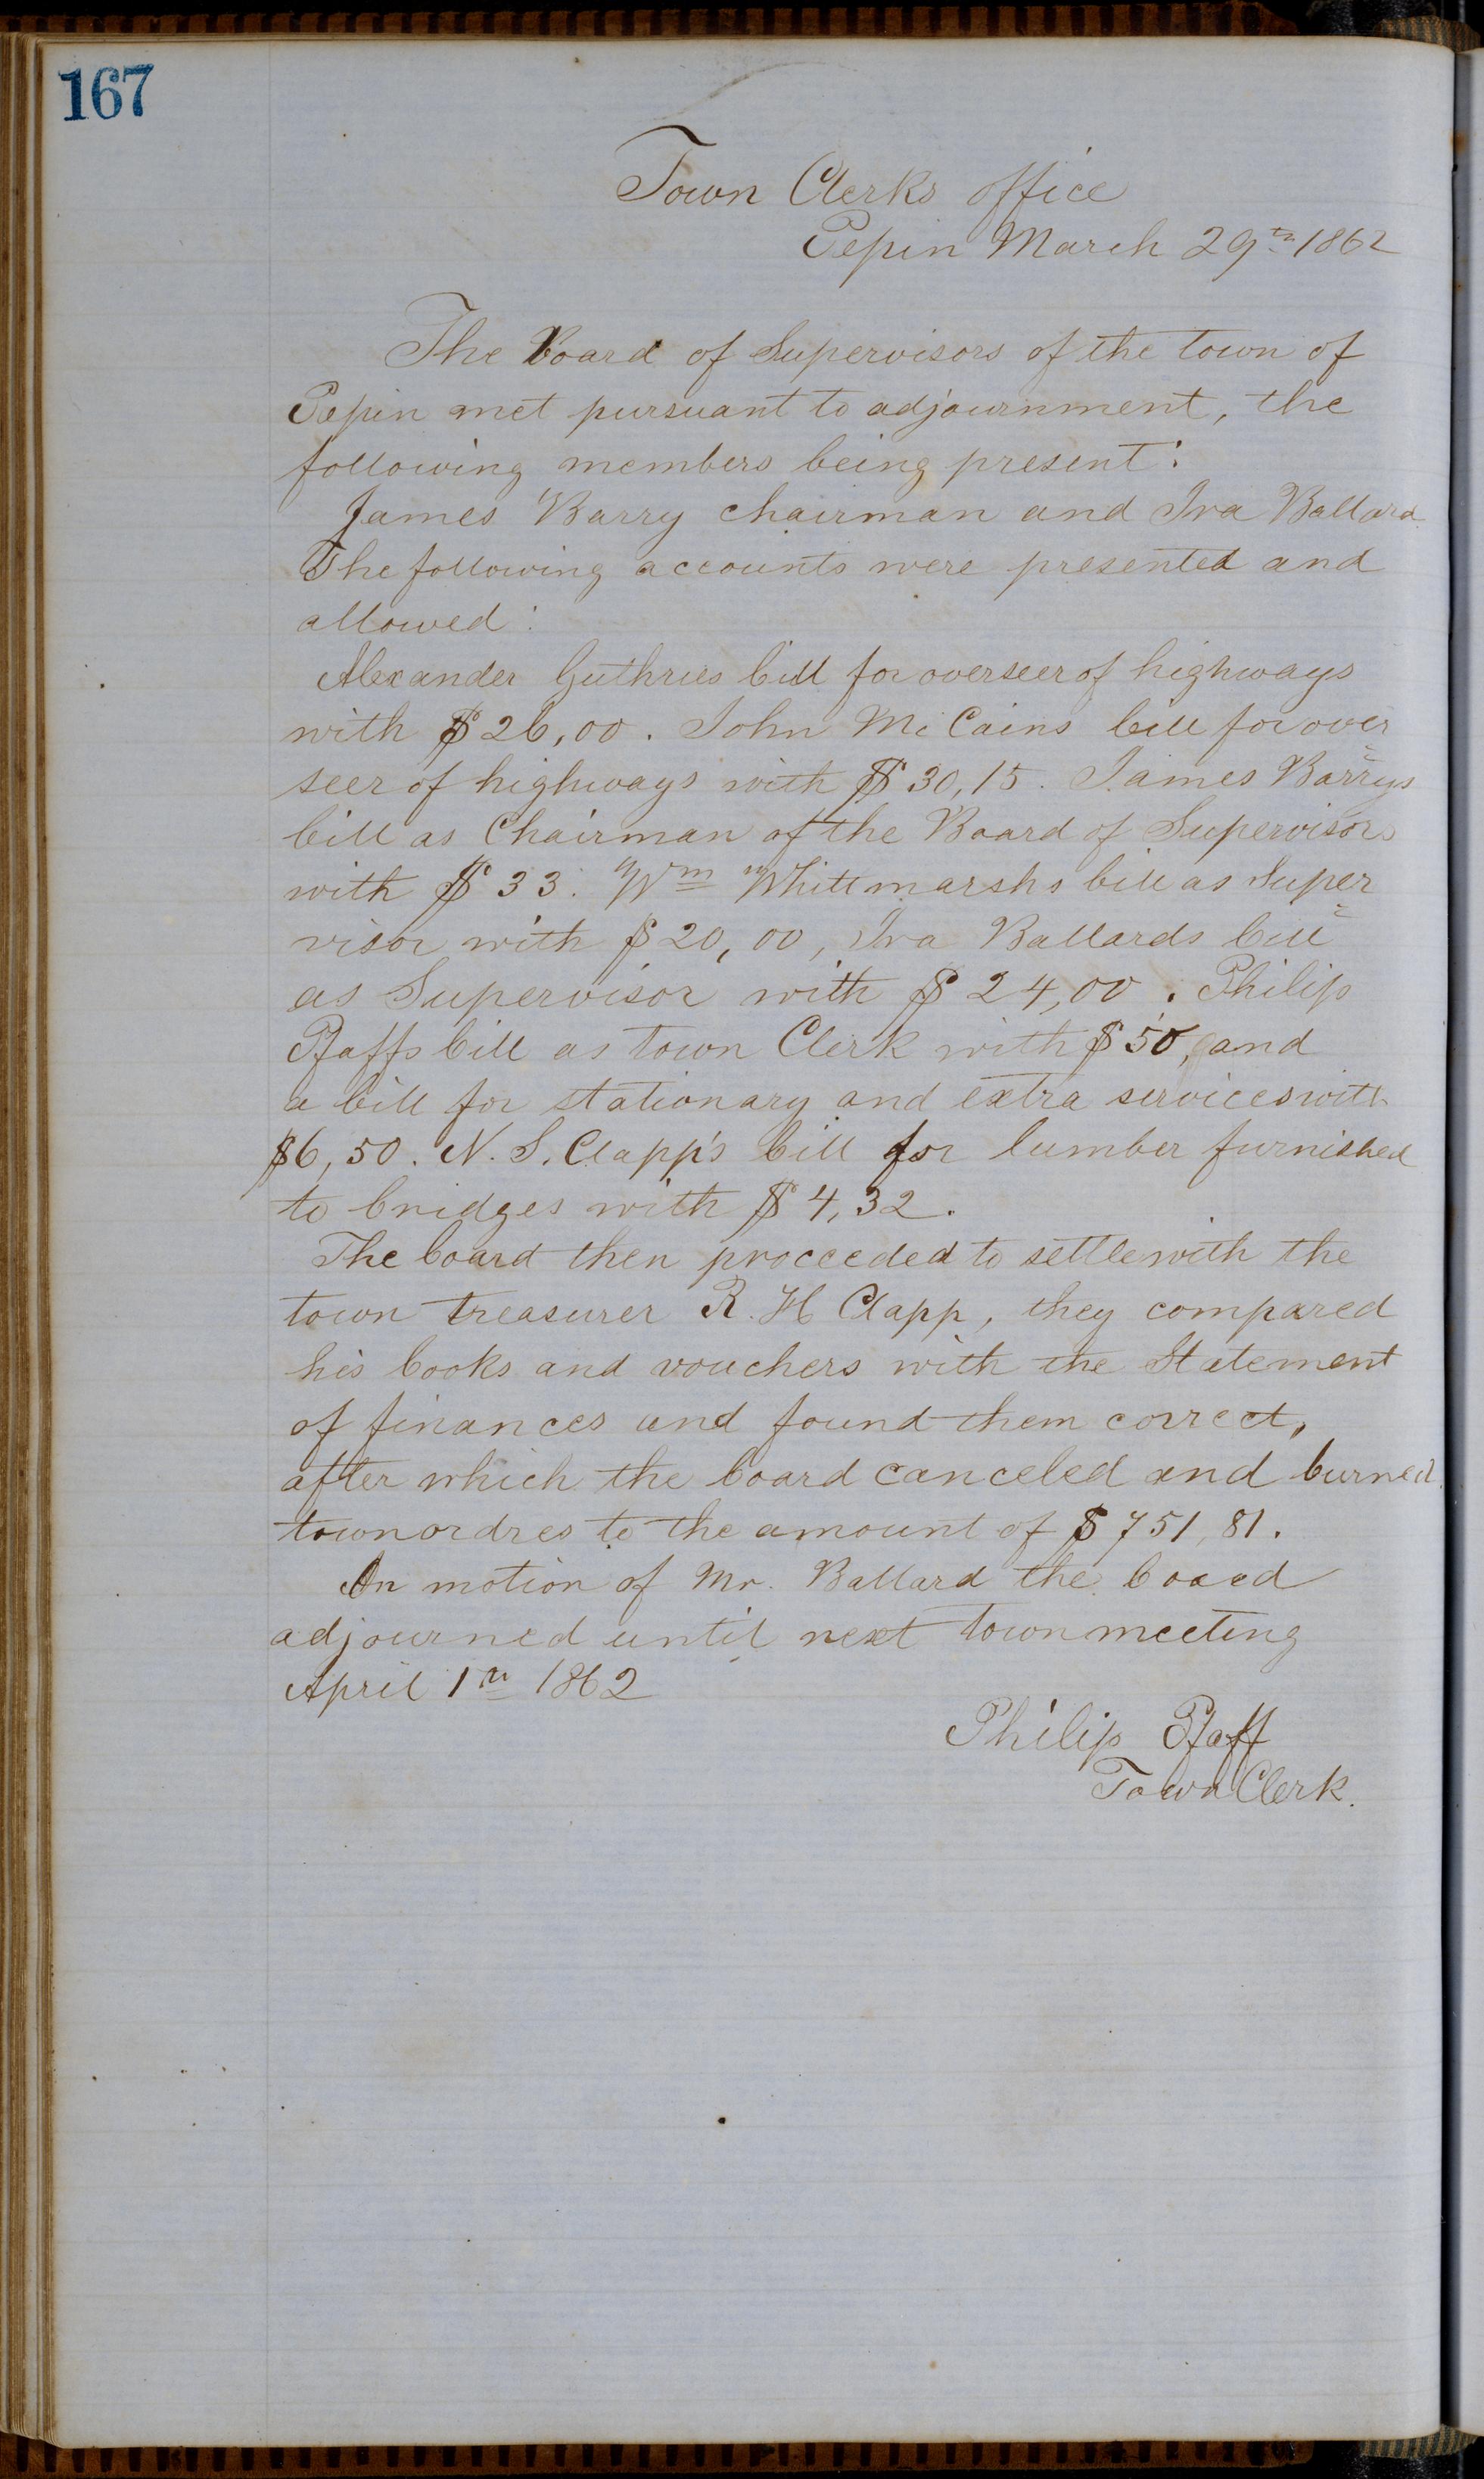 167
Town Clerks office
Pepin March 29th 1862
The Board of Supervisors of the town of
Pepin met pursuant to adjournment, the
following members being present:
James Barry chairman and Ira Ballard.
The following accounts were presented and
allowed:
Alexander Guthries bill for overseer of highways
with $26,00. John Mc Cains bill for over
seer of highways with $30,15. James Barrys
bill as Chairman of the Board of Supervisors
with $33. Wm Whittmarshs bill as Super
visor with $20,00, Ira Ballards bill
as Supervisor with $24,00. Philip
Pfaffs bill as town Clerk with $50, and
a bill for stationary and extra services with
$6,50. N. S. Clapp's bill for lumber furnished
to bridges with $4,32.
The board then proceeded to settle with the
town treasurer R. H Clapp, they compared
his books and vouchers with the Statement
of finances and found them correct,
after which the board canceled and burned
town ordres to the amount of $751,81.
On motion of Mr. Ballard the board
adjourned until next town meeting
April 1st 1862
Philip Pfaff
Town Clerk.